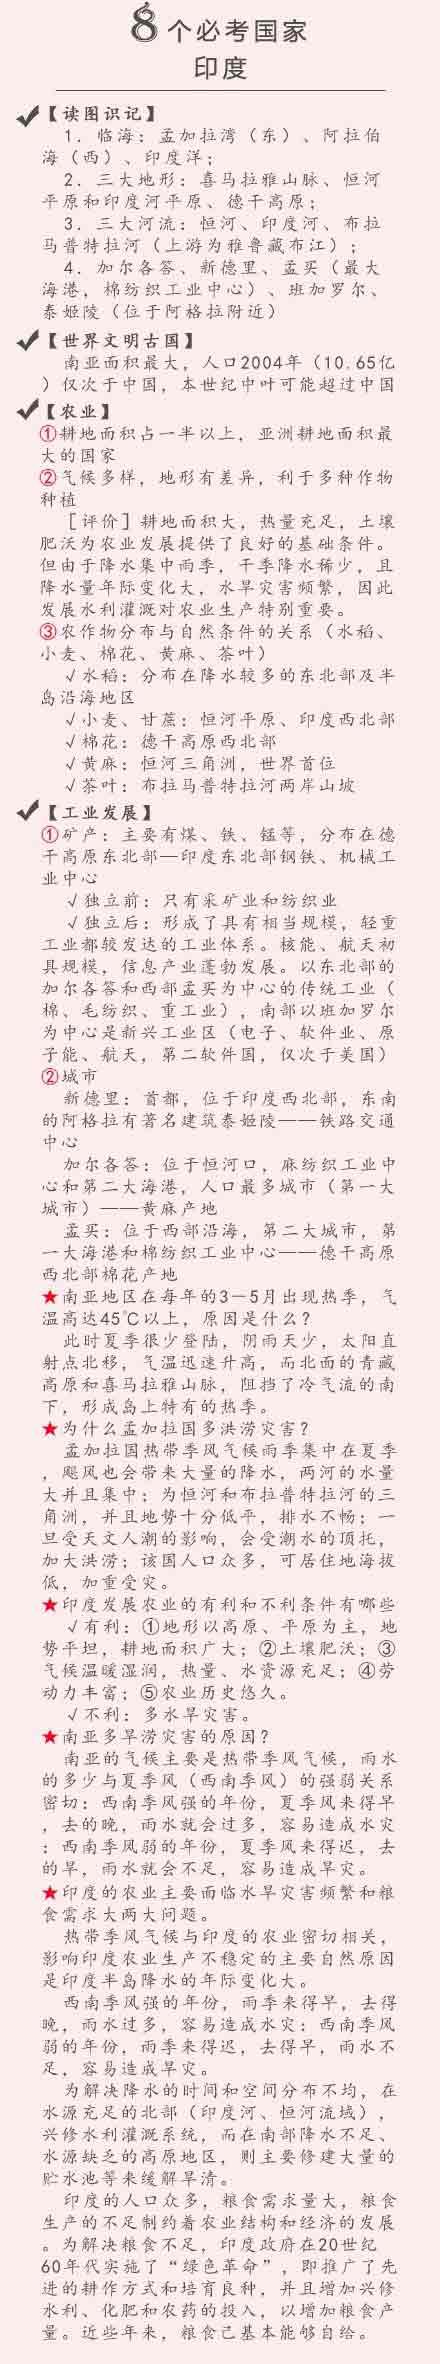 8个必考国家
印度
【读图识记】
1．临海：孟加拉湾（东）、阿拉伯
海（西）、印度洋；
2．三大地形：喜马拉雅山脉、恒河
平原和印度河平原、德干高原；
3．三大河流：恒河、印度河、布拉
马普特拉河（上游为雅鲁藏布江）；
4．加尔各答、新德里、孟买（最大
海港，棉纺织工业中心）、班加罗尔、
泰姬陵（位于阿格拉附近）
【世界文明古国】
南亚面积最大，人口2004年（10.65亿
）仅次于中国，本世纪中叶可能超过中国
【农业】
①耕地面积占一半以上，亚洲耕地面积最
大的国家
②气候多样，地形有差异，利于多种作物
种植
［评价］耕地面积大，热量充足，土壤
肥沃为农业发展提供了良好的基础条件。
但由于降水集中雨季，干季降水稀少，且
降水量年际变化大，水旱灾害频繁，因此
发展水利灌溉对农业生产特别重要。
③农作物分布与自然条件的关系（水稻、
小麦、棉花、黄麻、茶叶）
√水稻：分布在降水较多的东北部及半
岛沿海地区
√小麦、甘蔗：恒河平原、印度西北部
√棉花：德干高原西北部
√黄麻：恒河三角洲，世界首位
√茶叶：布拉马普特拉河两岸山坡
【工业发展】
①矿产：主要有煤、铁、锰等，分布在德
干高原东北部—印度东北部钢铁、机械工
业中心
√独立前：只有采矿业和纺织业
√独立后：形成了具有相当规模，轻重
工业都较发达的工业体系。核能、航天初
具规模，信息产业蓬勃发展。以东北部的
加尔各答和西部孟买为中心的传统工业（
棉、毛纺织、重工业），南部以班加罗尔
为中心是新兴工业区（电子、软件业、原
子能、航天，第二软件国，仅次于美国）
②城市
新德里：首都，位于印度西北部，东南
的阿格拉有著名建筑泰姬陵——铁路交通
中心
加尔各答：位于恒河口，麻纺织工业中
心和第二大海港，人口最多城市（第一大
城市）——黄麻产地
孟买：位于西部沿海，第二大城市，第
一大海港和棉纺织工业中心——德干高原
西北部棉花产地
★南亚地区在每年的3－5月出现热季，气
温高达45℃以上，原因是什么？
此时夏季很少登陆，阴雨天少，太阳直
射点北移，气温迅速升高，而北面的青藏
高原和喜马拉雅山脉，阻挡了冷气流的南
下，形成岛上特有的热季。
★为什么孟加拉国多洪涝灾害？
孟加拉国热带季风气候雨季集中在夏季
，飓风也会带来大量的降水，两河的水量
大并且集中；为恒河和布拉普特拉河的三
角洲，并且地势十分低平，排水不畅；一
旦受天文人潮的影响，会受潮水的顶托，
加大洪涝；该国人口众多，可居住地海拔
低，加重受灾。
★印度发展农业的有利和不利条件有哪些
√有利：①地形以高原、平原为主，地
势平坦，耕地面积广大；②土壤肥沃；③
气候温暖湿润，热量、水资源充足；④劳
动力丰富；⑤农业历史悠久。
√不利：多水旱灾害。
★南亚多旱涝灾害的原因？
南亚的气候主要是热带季风气候，雨水
的多少与夏季风（西南季风）的强弱关系
密切：西南季风强的年份，夏季风来得早
，去的晚，雨水就会过多，容易造成水灾
；西南季风弱的年份，夏季风来得迟，去
的早，雨水就会不足，容易造成旱灾。
★印度的农业主要面临水旱灾害频繁和粮
食需求大两大问题。
热带季风气候与印度的农业密切相关，
影响印度农业生产不稳定的主要自然原因
是印度半岛降水的年际变化大。
西南季风强的年份，雨季来得早，去得
晚，雨水过多，容易造成水灾；西南季风
弱的年份，雨季来得迟，去得早，雨水不
足，容易造成旱灾。
为解决降水的时间和空间分布不均，在
水源充足的北部（印度河、恒河流域），
兴修水利灌溉系统，而在南部降水不足、
水源缺乏的高原地区，则主要修建大量的
贮水池等来缓解旱清。
印度的人口众多，粮食需求量大，粮食
生产的不足制约着农业结构和经济的发展
。为解决粮食不足，印度政府在20世纪
60年代实施了“绿色革命”，即推广了先
进的耕作方式和培育良种，并且增加兴修
水利、化肥和农药的投入，以增加粮食产
量。近些年来，粮食已基本能够自给。